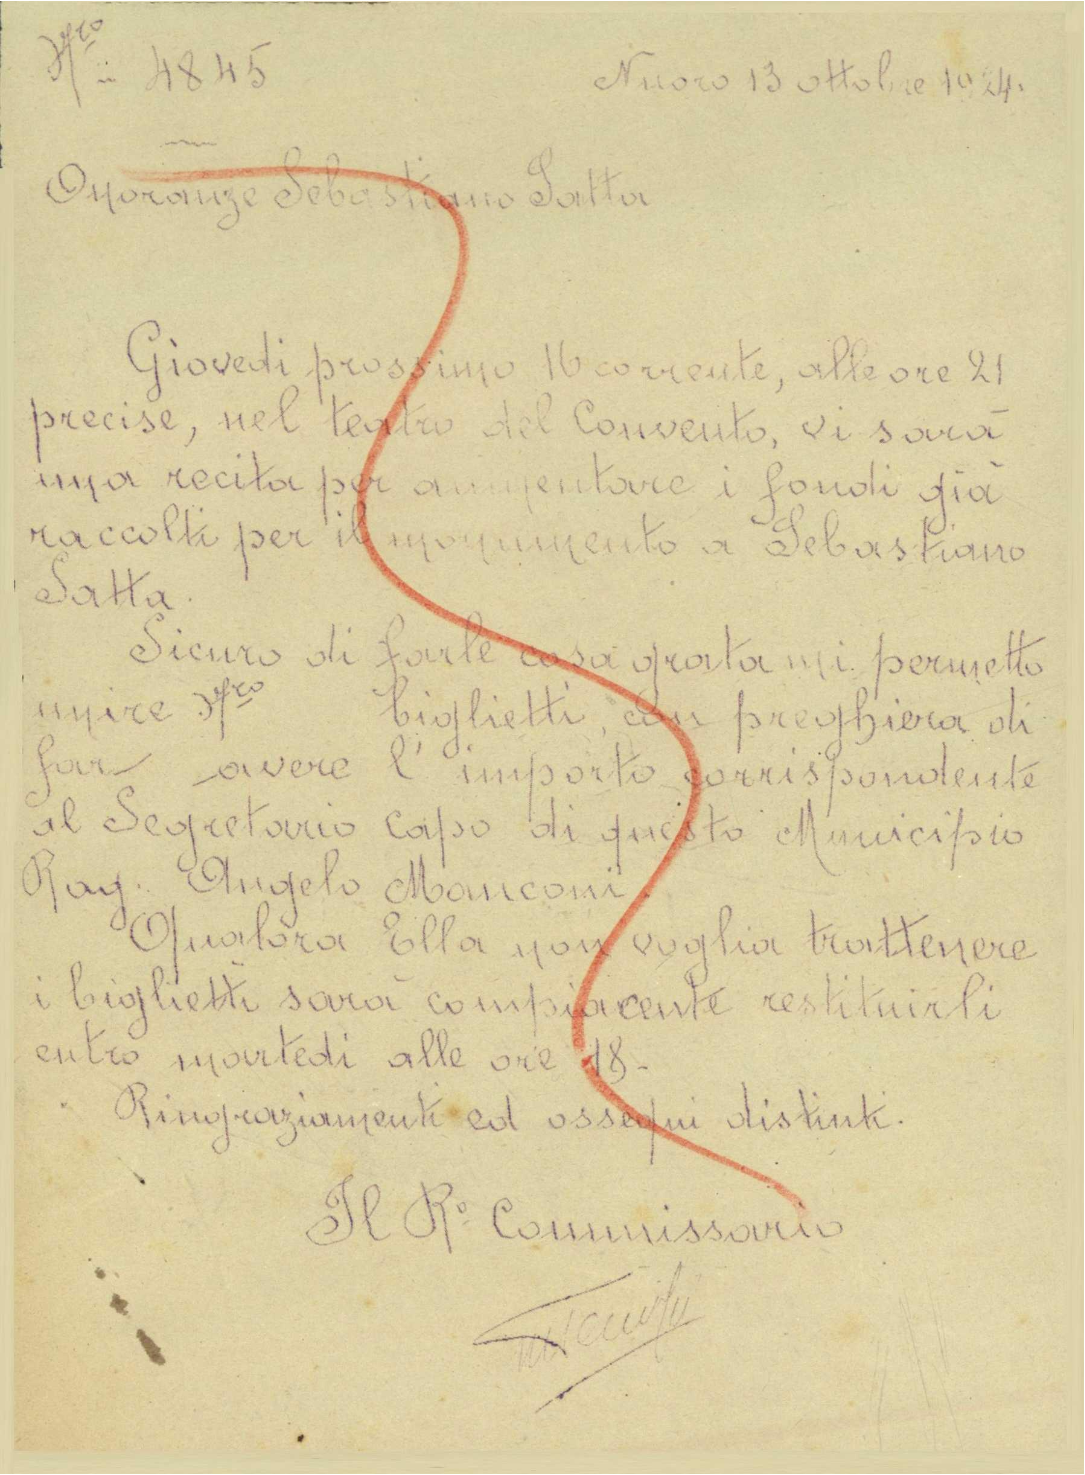 Nro 4845
Nuoro 13 ottobre 1924.
Onoranze Sebastiano Satta
Giovedi prossimo 16 corrente, alle ore 21
precise, nel teatro del Convento, vi sarà
una recita per aumentare i fondi già
raccolti per il monumento a Sebastiano
Satta.
Sicuro di farle cosa grata mi permetto
unire Nro biglietti, con preghiera di
far avere l'importo corrispondente
al Segretario capo di questo Municipio
Rag. Angelo Manconi.
Qualora Ella non voglia trattenere
i biglietti sarà compiacente restituirli
entro martedi alle ore 18-
Ringraziamenti ed ossequi distinti.
Il Ro Commissario